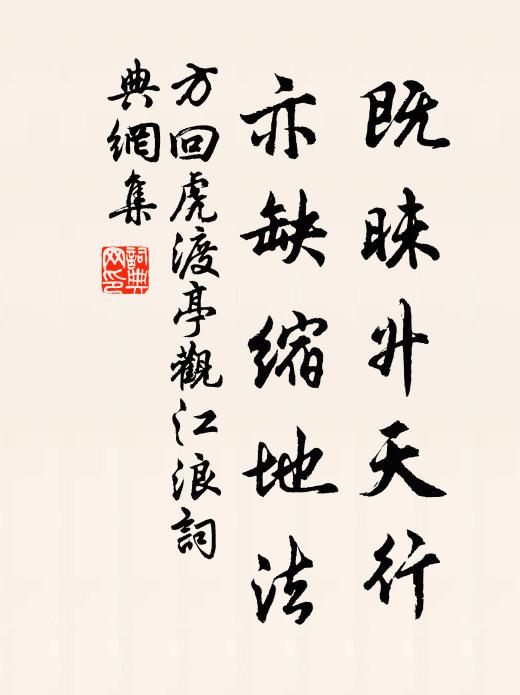 既昧升天行
亦缺缩地法
方回虎渡亭觀江浪詞
典網集
詞典網印